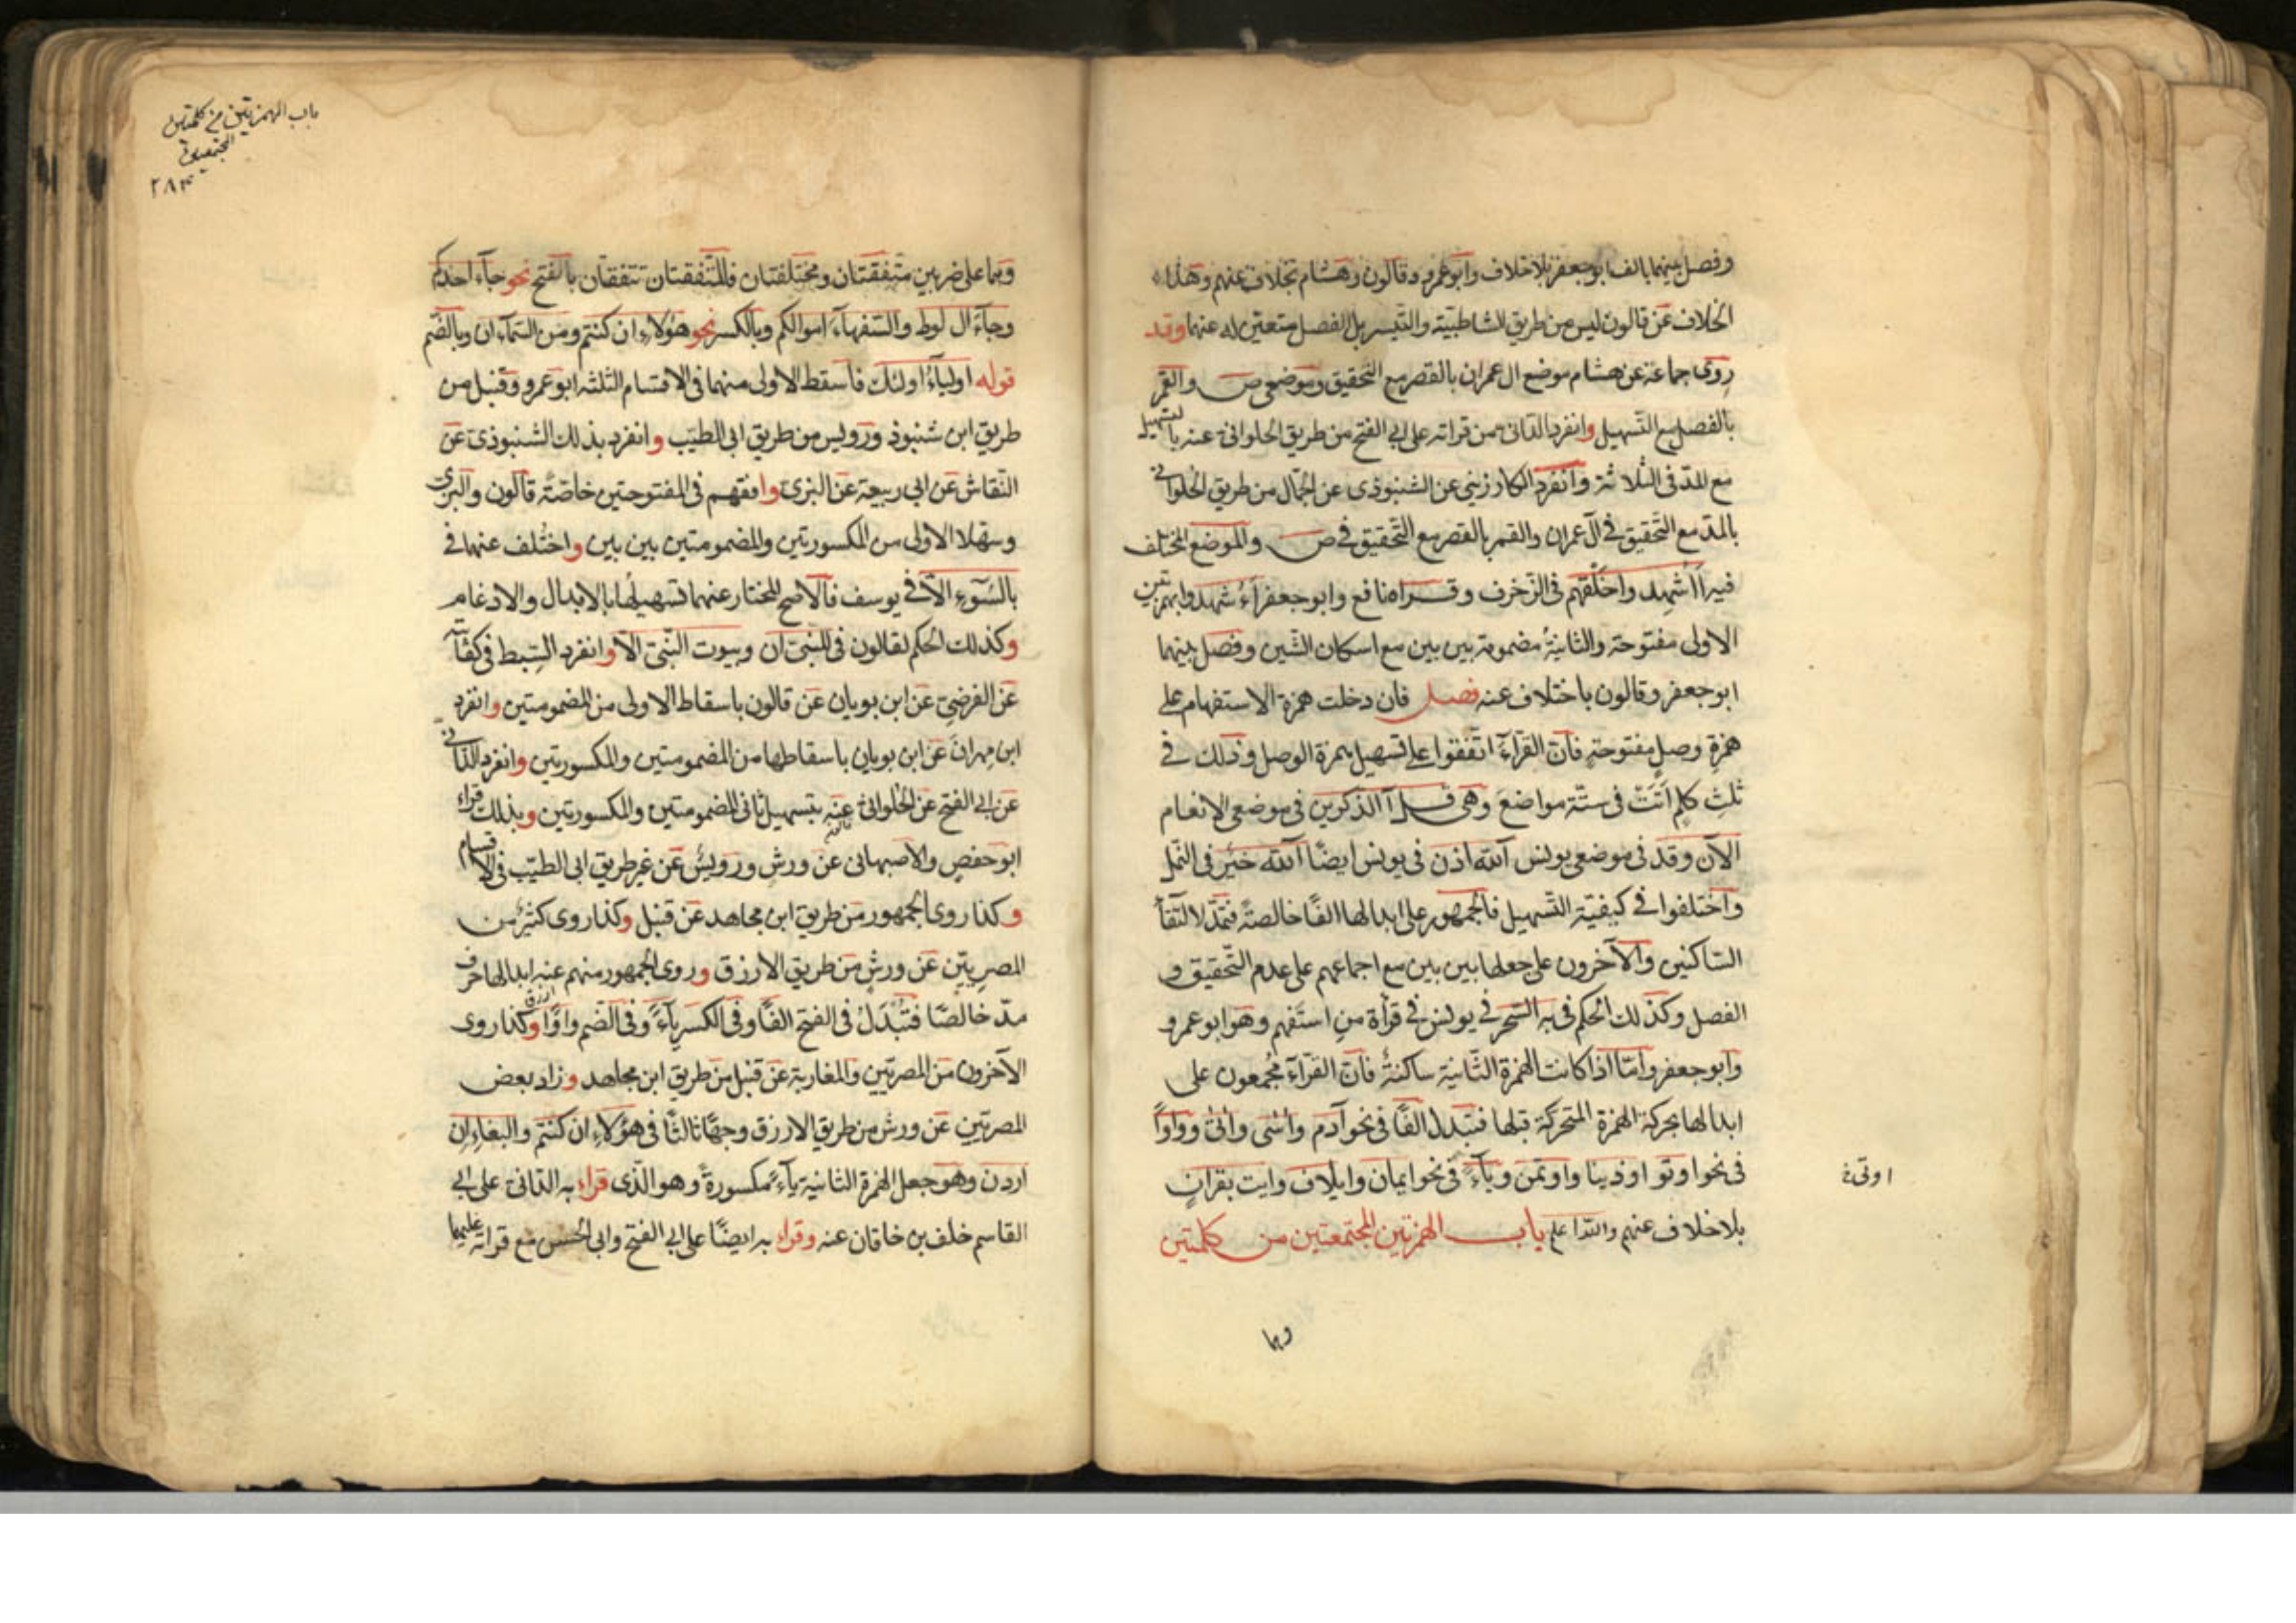 وفصل بينهما بالف ابو جعفر بلا خلاف وابو عمرو وقالون وهشام بخلاف عنهم وهذا
الخلاف عن قالون ليس من طريق الشاطبية والتيسير بل الفصل متعين له عنهما وقد
روى جماعة عن هشام موضع ال عمران بالقصر مع التحقيق وموضعي ص والقمر
بالفصل مع التسهيل وانفرد الداني من قراته على ابي الفتح من طريق الحلواني عنه بالتسهيل
مع المد في الثلاثة وانفرد الكارزيني عن الشنبوذى عن الجمال من طريق الحلواني
بالمد مع التحقيق في آل عمران والقمر بالقصر مع التحقيق في ص والموضع المختلف
فيه أأشهد واخلقهم في الزخرف وقراه نافع وابو جعفر أءُشهدوا بهمزتين
الاولى مفتوحة والثانيةُ مضمومة بين بين مع اسكان الشين وفصل بينهما
ابو جعفر وقالون باختلاف عنه فصل فان دخلت همزة الاستفهام على
همزةِ وصلٍ مفتوحةٍ فانّ القرّاءَ اتّفقوا على تسهيل همزة الوصل وذلك في
ثلثِ كلمٍ اَتَتْ في ستّة مواضعَ وهى قل آالذكرين في موضعي الانعام
الآن وقد في موضعي يونس آلله اذن في يونس ايضًا آلله خير في النمل
واختلفوا في كيفيّة التّسهيل فالجمهور على ابدالها الفًا خالصةً فتمدّ لالتقا
السّاكنين والآخرون على جعلها بين بين مع اجماعهم على عدم التّحقيق و
الفصل وكذلك الحكم في به السّحر في يونس في قرأة من استفهم وهو ابو عمرو
وابو جعفر وامّا اذا كانت الهمزة الثّانية ساكنةً فانّ القرّآءَ مُجمعون على
ابدالها بحركة الهمزة المتحركة قبلها فتبدل الفًا في نحو آدم وآسى وآتى وواوًا
في نحو اوتو اوذينا واوتمن ويآءً في نحو ايمان وايلاف وايت بقرانٍ
اوتى
بلا خلاف عنهم والله اعلم باب الهمزتين المجتمعتين من كلمتين
وهما
باب الهمزتين من كلمتين
المجتمعين
٢٨٣
وهما على ضربين متفقتان ومختلفتان فالمتّفقتان تتفقان بالفتح نحو جآء احدكم
وجآء ال لوط والسّفهاءَ اموالكم وبالكسر نحو هؤلاءِ ان كنتم ومن السّمآء ان وبالضّم
قوله اوليآءُ اولئك فاسقط الاولى منهما في الاقسام الثلثه ابو عمرو وقنبل من
طريق ابن شنبوذ ورويس من طريق ابى الطيّب وانفرد بذلك الشنبوذى عن
النّقاش عن ابي ربيعة عن البزى وافقهم في المفتوحتين خاصّةً قالون والبزى
وسهّلا الاولى من المكسورتين والمضمومتين بين بين واختُلف عنهما في
بالسّوءِ الاّ في يوسف فالاصح المختار عنهما تسهيلُها بالابدال والادغام
وكذلك الحكم لقالون في للنبىّ ان وبيوت النّبىّ الاّ وانفرد السِّبط في كفايته
عن الفرضىّ عن ابن بويان عن قالون باسقاط الاولى من المضمومتين وانفرد
ابن مِهرانَ عن ابن بويان باسقاطها من المضمومتين والمكسورتين وانفرد الدّاني
عن ابي الفتح عن الحُلواني عنه بتسهيل ثاني المضمومتين والمكسورتين وبذلك قراء
ابو جعفر والاصبهانى عن ورش ورويسٌ عن غير طريق ابى الطيّب في الاقسام
وكذا روى الجمهور من طريق ابن مجاهد عن قنبل وكذا روى كثيرٌ من
المصريّين عن ورشٍ من طريق الازرق وروى الجمهور منهم عنه ابدالها حرف
مدّ خالصًا فتُبْدَلُ في الفتح الفًا وفي الكسر يآءً وفي الضّم واوًا وكذا روى
الآخرون من المصريّين والمغاربة عن قنبل من طريق ابن مجاهد وزاد بعض
المصريّين عن ورش من طريق الازرق وجهًا ثالثًا في هؤلاءِ ان كنتم والبغاءِ اِن
اردن وهو جعل الهمزة الثانية يآءً مكسورةً وهو الّذى قراءَ به الدّاني على ابي
القاسم خلف بن خاقان عنه وقراء به ايضًا على ابي الفتح وابى الحسن مع قراته عليهما